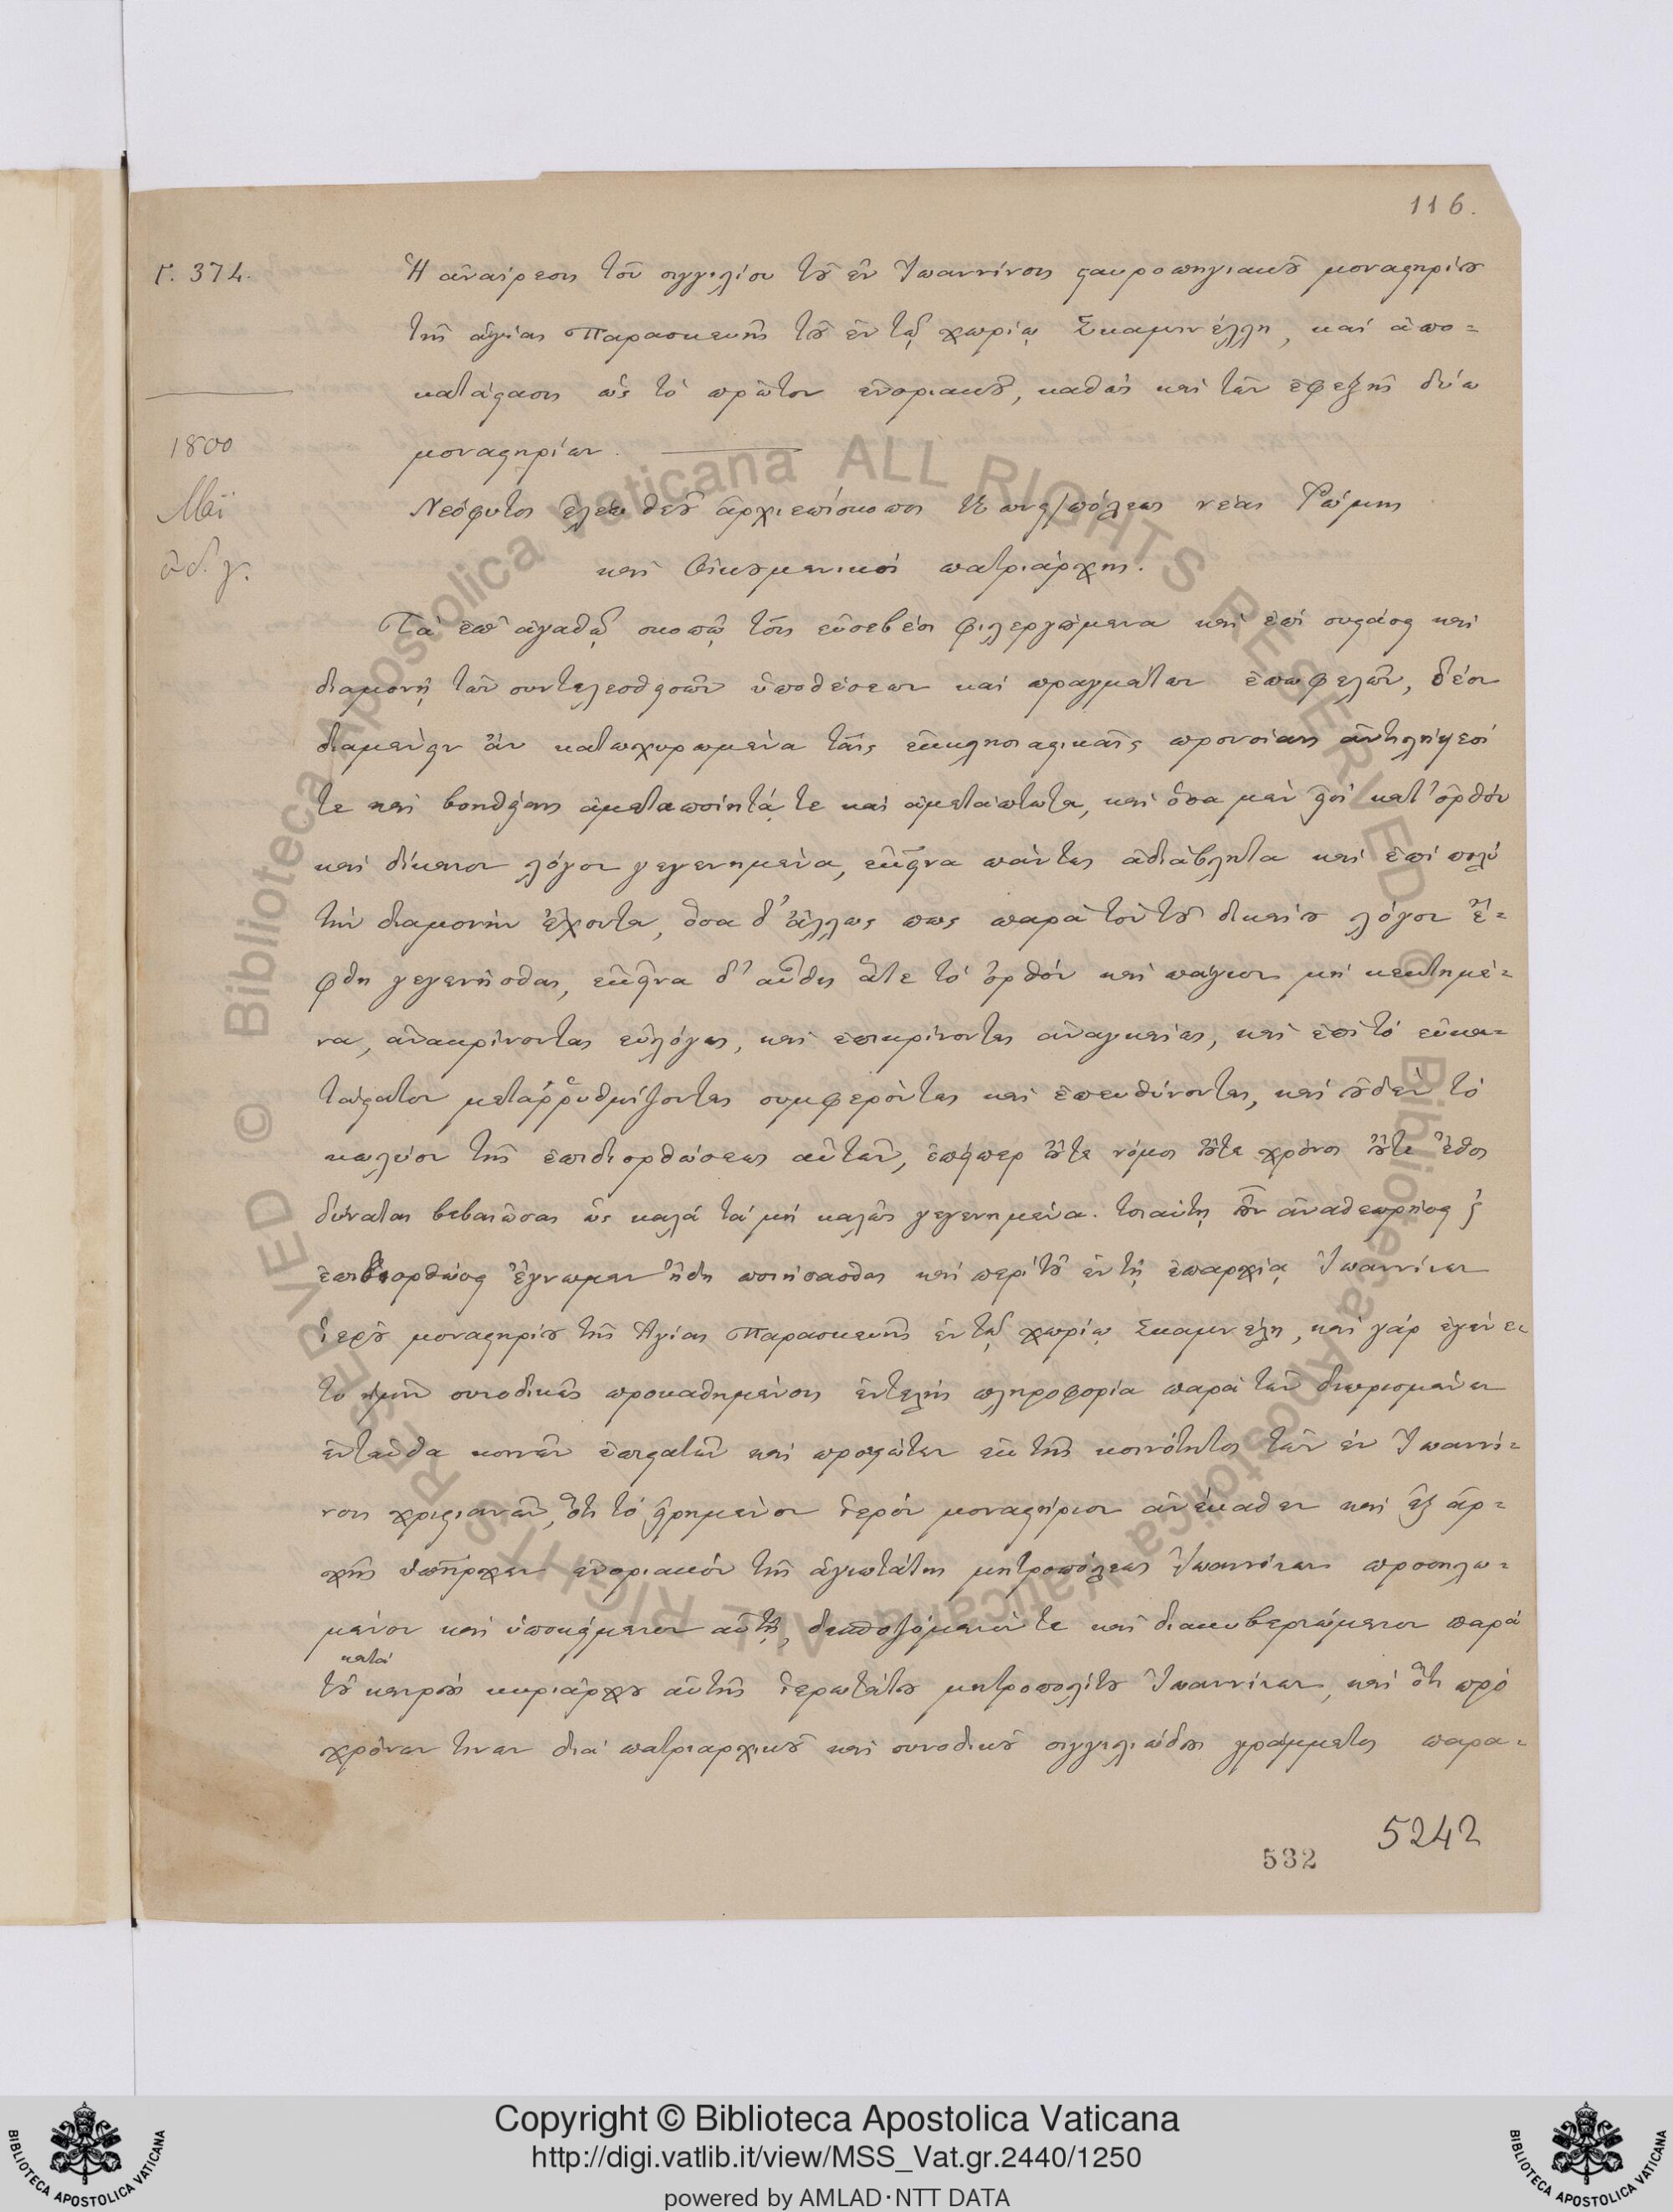 116.
Γ. 374.
Ἡ ἀναίρεσις τοῦ σιγγιλίου τȣ͂ ἐν Ἰωαννίνοις ςαυροπηγιακȣ͂ μοναςηρίȣ
τῆς ἁγίας Παρασκευῆς τȣ͂ ἐν τῷ χωρίῳ Σκαμνέλλη, καὶ ἀπο=
κατάςασις ὡς τὸ πρῶτον ἐνοριακȣ͂, καθὼς καὶ τῶν ἐφεξῆς δύω
μοναςηρίων.
1800
Μαΐ
ἰνδ. γ.
Νεόφυτος ἐλέῳ θεȣ͂ ἀρχιεπίσκοπος Κωνς/πόλεως νέας Ῥώμης
καὶ Οἰκȣμενικὸς πατριάρχης.
Τὰ ἐπ' ἀγαθῷ σκοπῷ τοῖς εὐσεβέσι φιλεργȣ́μενα καὶ ἐπὶ συςάσει καὶ
διαμονῇ τῶν συντελεσθεισῶν ὑποθέσεων καὶ πραγμάτων ἐπωφελῶν, δέον
διαμένειν ἂν κατωχυρωμένα ταῖς ἐκκλησιαςικαῖς προνοίαις ἀντιλήψεσί
τε καὶ βοηθείαις ἀμεταποίητά τε καὶ ἀμετάπτωτα, καὶ ὅσα μὲν εἰσὶ κατ' ὀρθὸν
καὶ δίκαιον λόγον γεγενημένα, ἐκεῖνα πάντως ἀδιάβλητα καὶ ἐπὶ πολὺ
τὴν διαμονὴν ἔχοντα, ὅσα δ' ἄλλως πως παρὰ τὸν τȣ͂ δικαίȣ λόγον ἔ=
φθη γεγενῆσθαι, ἐκεῖνα δ' αὖθις ἅτε τὸ ὀρθὸν καὶ πάγιον μὴ κεκτημέ=
να, ἀνακρίνονται εὐλόγως, καὶ ἐπικρίνονται ἀναγκαίως, καὶ ἐπὶ τὸ εὐκα=
τάςατον μεταῤῥυθμίζονται συμφερόντως καὶ ἐπευθύνονται, καὶ ȣ̓δὲν τὸ
κωλύον τῆς ἐπιδιορθώσεως αὐτῶν, ἐπείπερ ȣ̓́τε νόμος ȣ̓́τε χρόνος ȣ̓́τε ἔθος
δύναται βεβαιῶσαι ὡς καλὰ τὰ μὴ καλῶς γεγενημένα. τοιαύτῃ ȣ̓͂ν ἀναθεωρήσει ϗ
ἐπιδιορθώσει ἔγνωμεν ἤδη ποιήσασθαι καὶ περὶ τȣ͂ ἐν τῇ ἐπαρχίᾳ Ἰωαννίνων
ἱερȣ͂ μοναςηρίȣ τῆς Ἁγίας Παρασκευῆς ἐν τῷ χωρίῳ Σκαμνέλη, καὶ γὰρ ἐγένε=
το ἡμῖν συνοδικῶς προκαθημένοις ἐντελὴς πληροφορία παρὰ τῶν διωρισμένων
ἐνταῦθα κοινῶν ἐπιςατῶν καὶ προεςώτων ἐκ τῆς κοινότητος τῶν ἐν Ἰωαννί=
νοις χριςιανῶν, ὅτι τὸ εἰρημένον ἱερὸν μοναςήριον ἀνέκαθεν καὶ ἐξ ἀρ=
χῆς ὑπῆρχεν ἐνοριακὸν τῆς ἁγιωτάτης μητροπόλεως Ἰωαννίνων προσηλω=
μένον καὶ ὑποκείμενον αὐτῇ, δεσποζόμενόν τε καὶ διακυβερνώμενον παρὰ
κατὰ
τȣ͂ καιρὸν κυριάρχȣ αὐτῆς ἱερωτάτȣ μητροπολίτȣ Ἰωαννίνων, καὶ ὅτι πρὸ
χρόνων τινων διὰ πατριαρχικȣ͂ καὶ συνοδικȣ͂ σιγγιλιώδȣς γράμματος παρα=
532
5242
Copyright © Biblioteca Apostolica Vaticana
http://digi.vatlib.it/view/MSS_Vat.gr.2440/1250
powered by AMLAD·NTT DATA